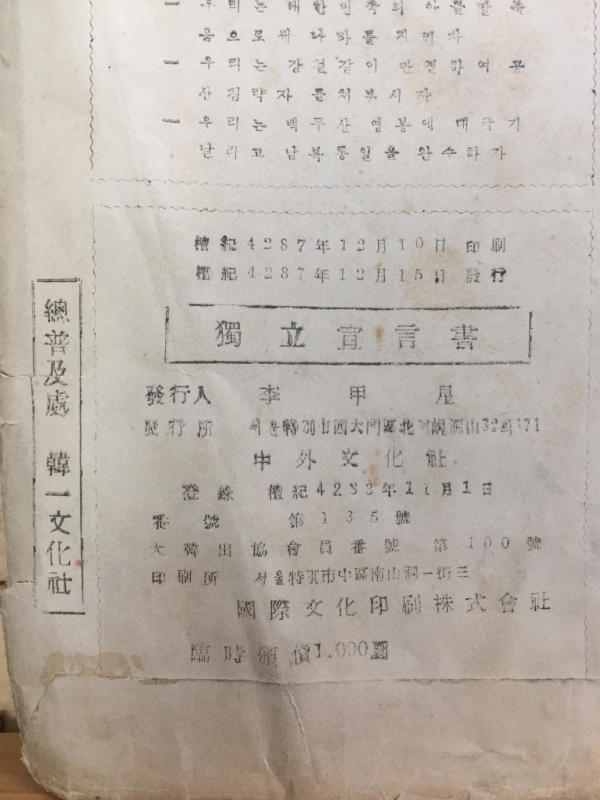 一 우리는 대한민국의 아들딸 목
숨으로써 나라를 지키자
一 우리는 강철같이 단결하여 공
산침략자를 쳐부시자
一 우리는 백두산 영봉에 태극기
날리고 남북통일을 완수하자
檀紀4287年12月10日 印刷
檀紀4287年12月15日 發行
獨立宣言書
發行人 李甲
發行所 서울特別市西大門區北阿峴洞山32의171
中外文化社
登錄 檀紀4283年11月1日
番號 第135號
大韓出協會員番號 第100號
印刷所 서울特別市中區南山洞一街三
國際文化印刷株式會社
臨時頒價1.000圜
總普及處 韓一文化社